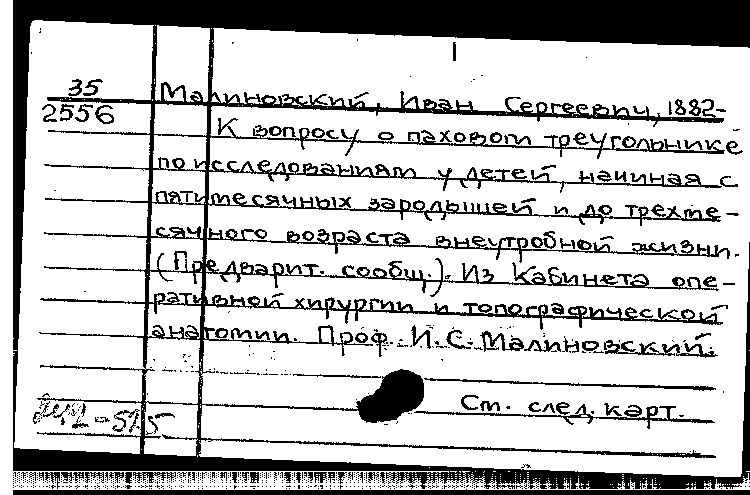 35
2556
Малиновский, Иван Сергеевич, 1882-
К вопросу о паховом треугольнике
по исследованиям у детей, начиная с
пятимесячных зародышей и до трехме-
сячного возраста внеутробной жизни.
(Предварит. сообщ.). Из Кабинета опе-
ративной хирургии и топографической
анатомии. Проф. И. С. Малиновский.
См. след. карт.